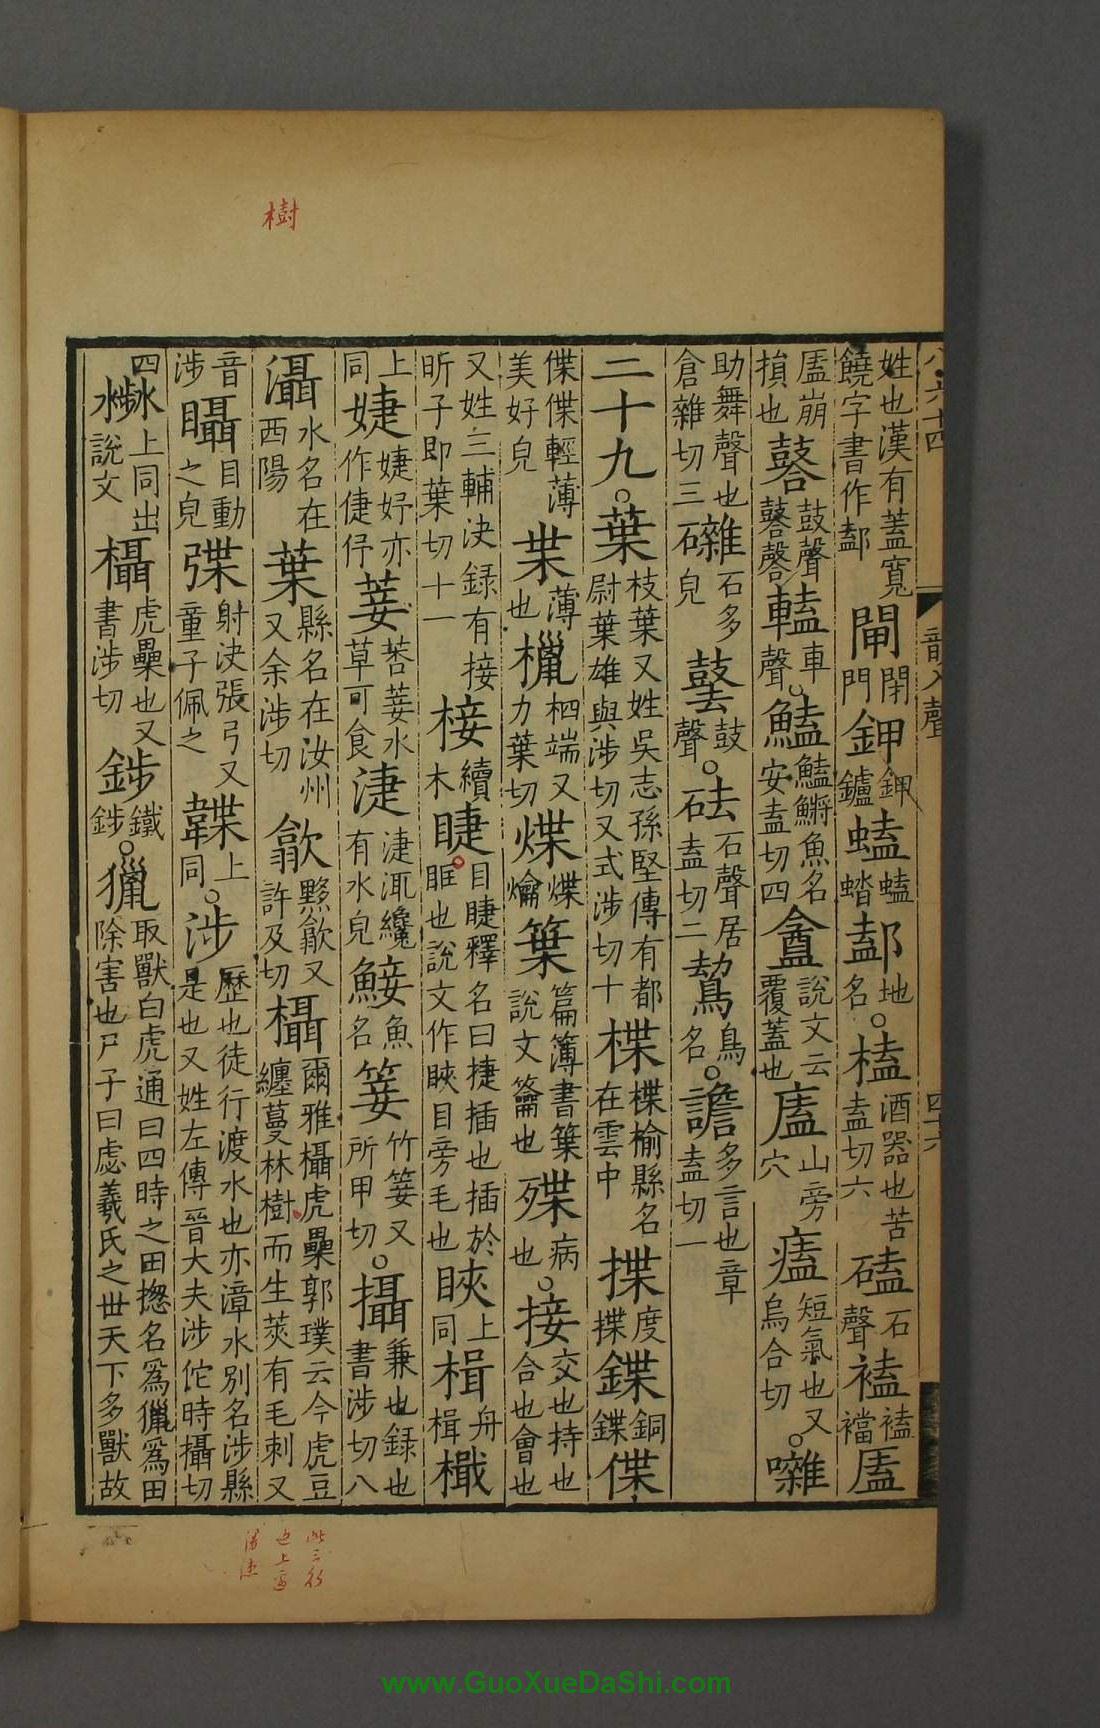 樹
姓也漢有蓋寬饒字書作𨜴閘閉門鉀鉀鑪䗘䗘蜡𨜴地名○榼酒器也苦盍切六磕石聲㯼㯼襠㕎
㕎崩損也𪔣鼓聲𪔣𪔣䡷車聲○鰪鰪䱎魚名安盍切四盦說文云覆蓋也㕎山旁穴㾑短氣也又烏合切○囃
助舞聲也倉雜切三𥗭石多皃鼞鼓聲○砝石聲居盍切二鶷鳥名○譫多言也章盍切一
二十九○葉枝葉又姓吳志孫堅傳有都尉葉雄與涉切又式涉切十楪楪榆縣名在雲中揲度揲鍱銅鍱偞
偞偞輕薄美好皃枼薄也擸柶端又力葉切煠煠爚䈎篇簿書䈎說文籥也殜病也○接交也持也合也會也
又姓三輔決録有接昕子即葉切十一椄續木睫目睫釋名曰捷插也插於眶也說文作䀹目旁毛也䀹上同楫舟楫檝
上同婕婕妤亦作倢伃菨菨水草可食淁淁浥纔有水皃鯜魚名箑竹箑又所甲切○攝兼也録也書涉切八
灄水名在西陽葉縣名在汝州又余涉切歙黟歙又許及切欇爾雅欇虎櫐郭璞云今虎豆纏蔓林樹而生莢有毛刺又
音涉䀹目動之皃弽射決張弓又童子佩之韘上同○涉歷也徒行渡水也亦漳水別名涉縣是也又姓左傳晉大夫涉佗時攝切
四𣻣上同出說文欇虎櫐也又書涉切鉵鐵鉵○獵取獸白虎通曰四時之田揔名爲獵爲田除害也尸子曰虙羲氏之世天下多獸故
八六十四
韻入聲
四十六
此三行
www.GuoXueDaShi.com